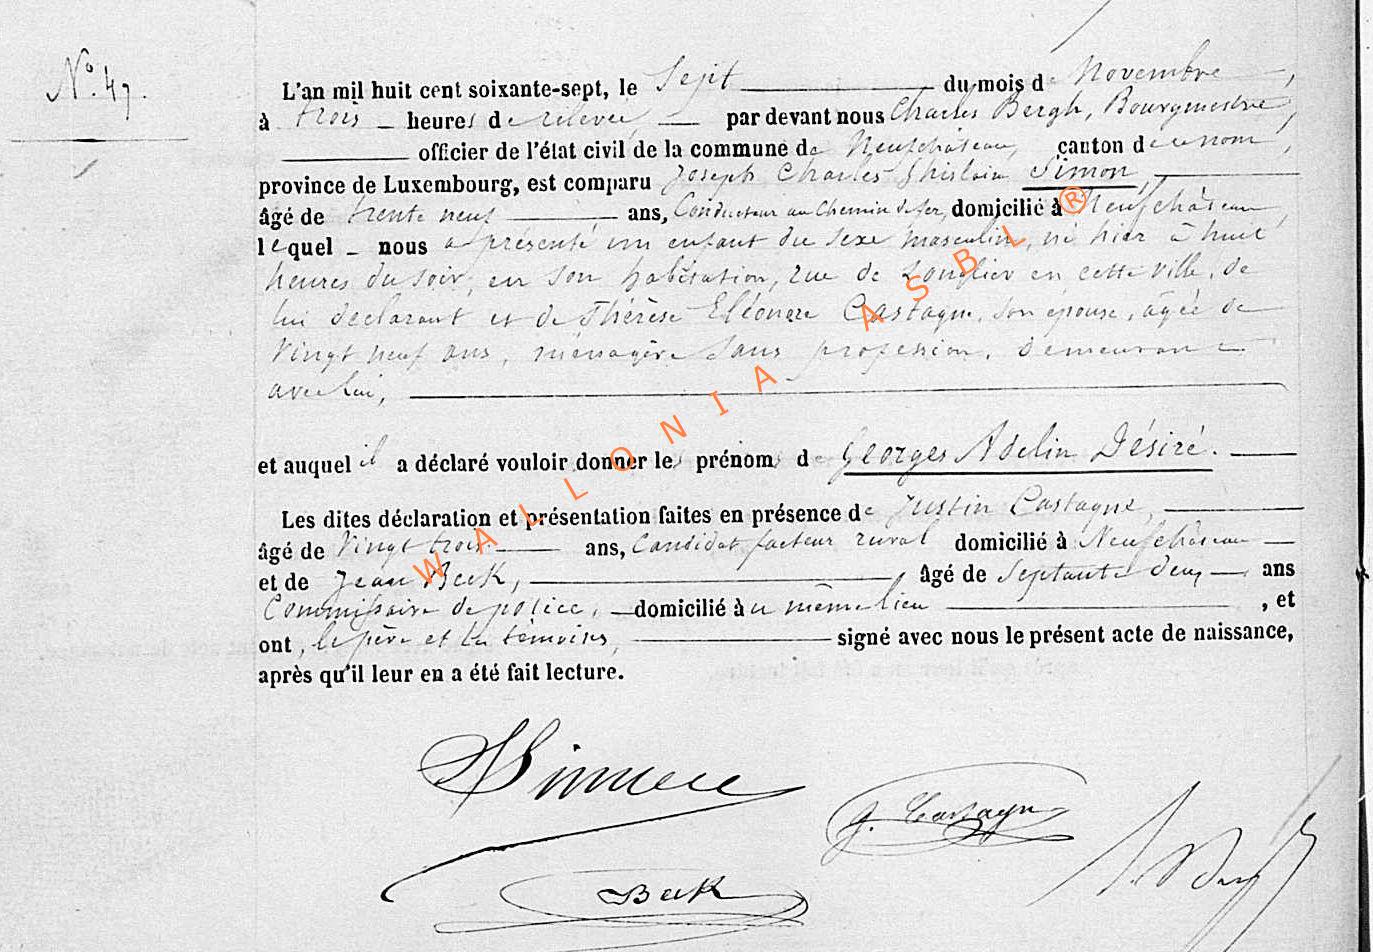 N° 47.
L'an mil huit cent soixante-sept, le Sept du mois de Novembre,
à trois heures de relevée, par devant nous Charles Bergh, Bourgmestre,
officier de l'état civil de la commune de Neufchâteau, canton de ce nom,
province de Luxembourg, est comparu Joseph Charles Ghislain Simon,
âgé de trente neuf ans, Conducteur au Chemin de fer, domicilié à Neufchâteau,
lequel nous a présenté un enfant du sexe masculin, né hier à huit
heures du soir, en son habitation, rue de Longlier en cette ville, de
lui déclarant et de Thérèse Eléonore Castagne, son épouse, agée de
vingt neuf ans, ménagère sans profession, demeurant
avec lui,
et auquel il a déclaré vouloir donner les prénoms de Georges Adelin Désiré.
Les dites déclaration et présentation faites en présence de Justin Castagne,
âgé de vingt trois ans, Candidat facteur rural domicilié à Neufchâteau
et de Jean Beck, âgé de septante deux ans
Commissaire de police, domicilié au même lieu, et
ont, le père et les témoins, signé avec nous le présent acte de naissance,
après qu'il leur en a été fait lecture.
WALLONIA ASBL ®
Simon
J. Castagne
Beck